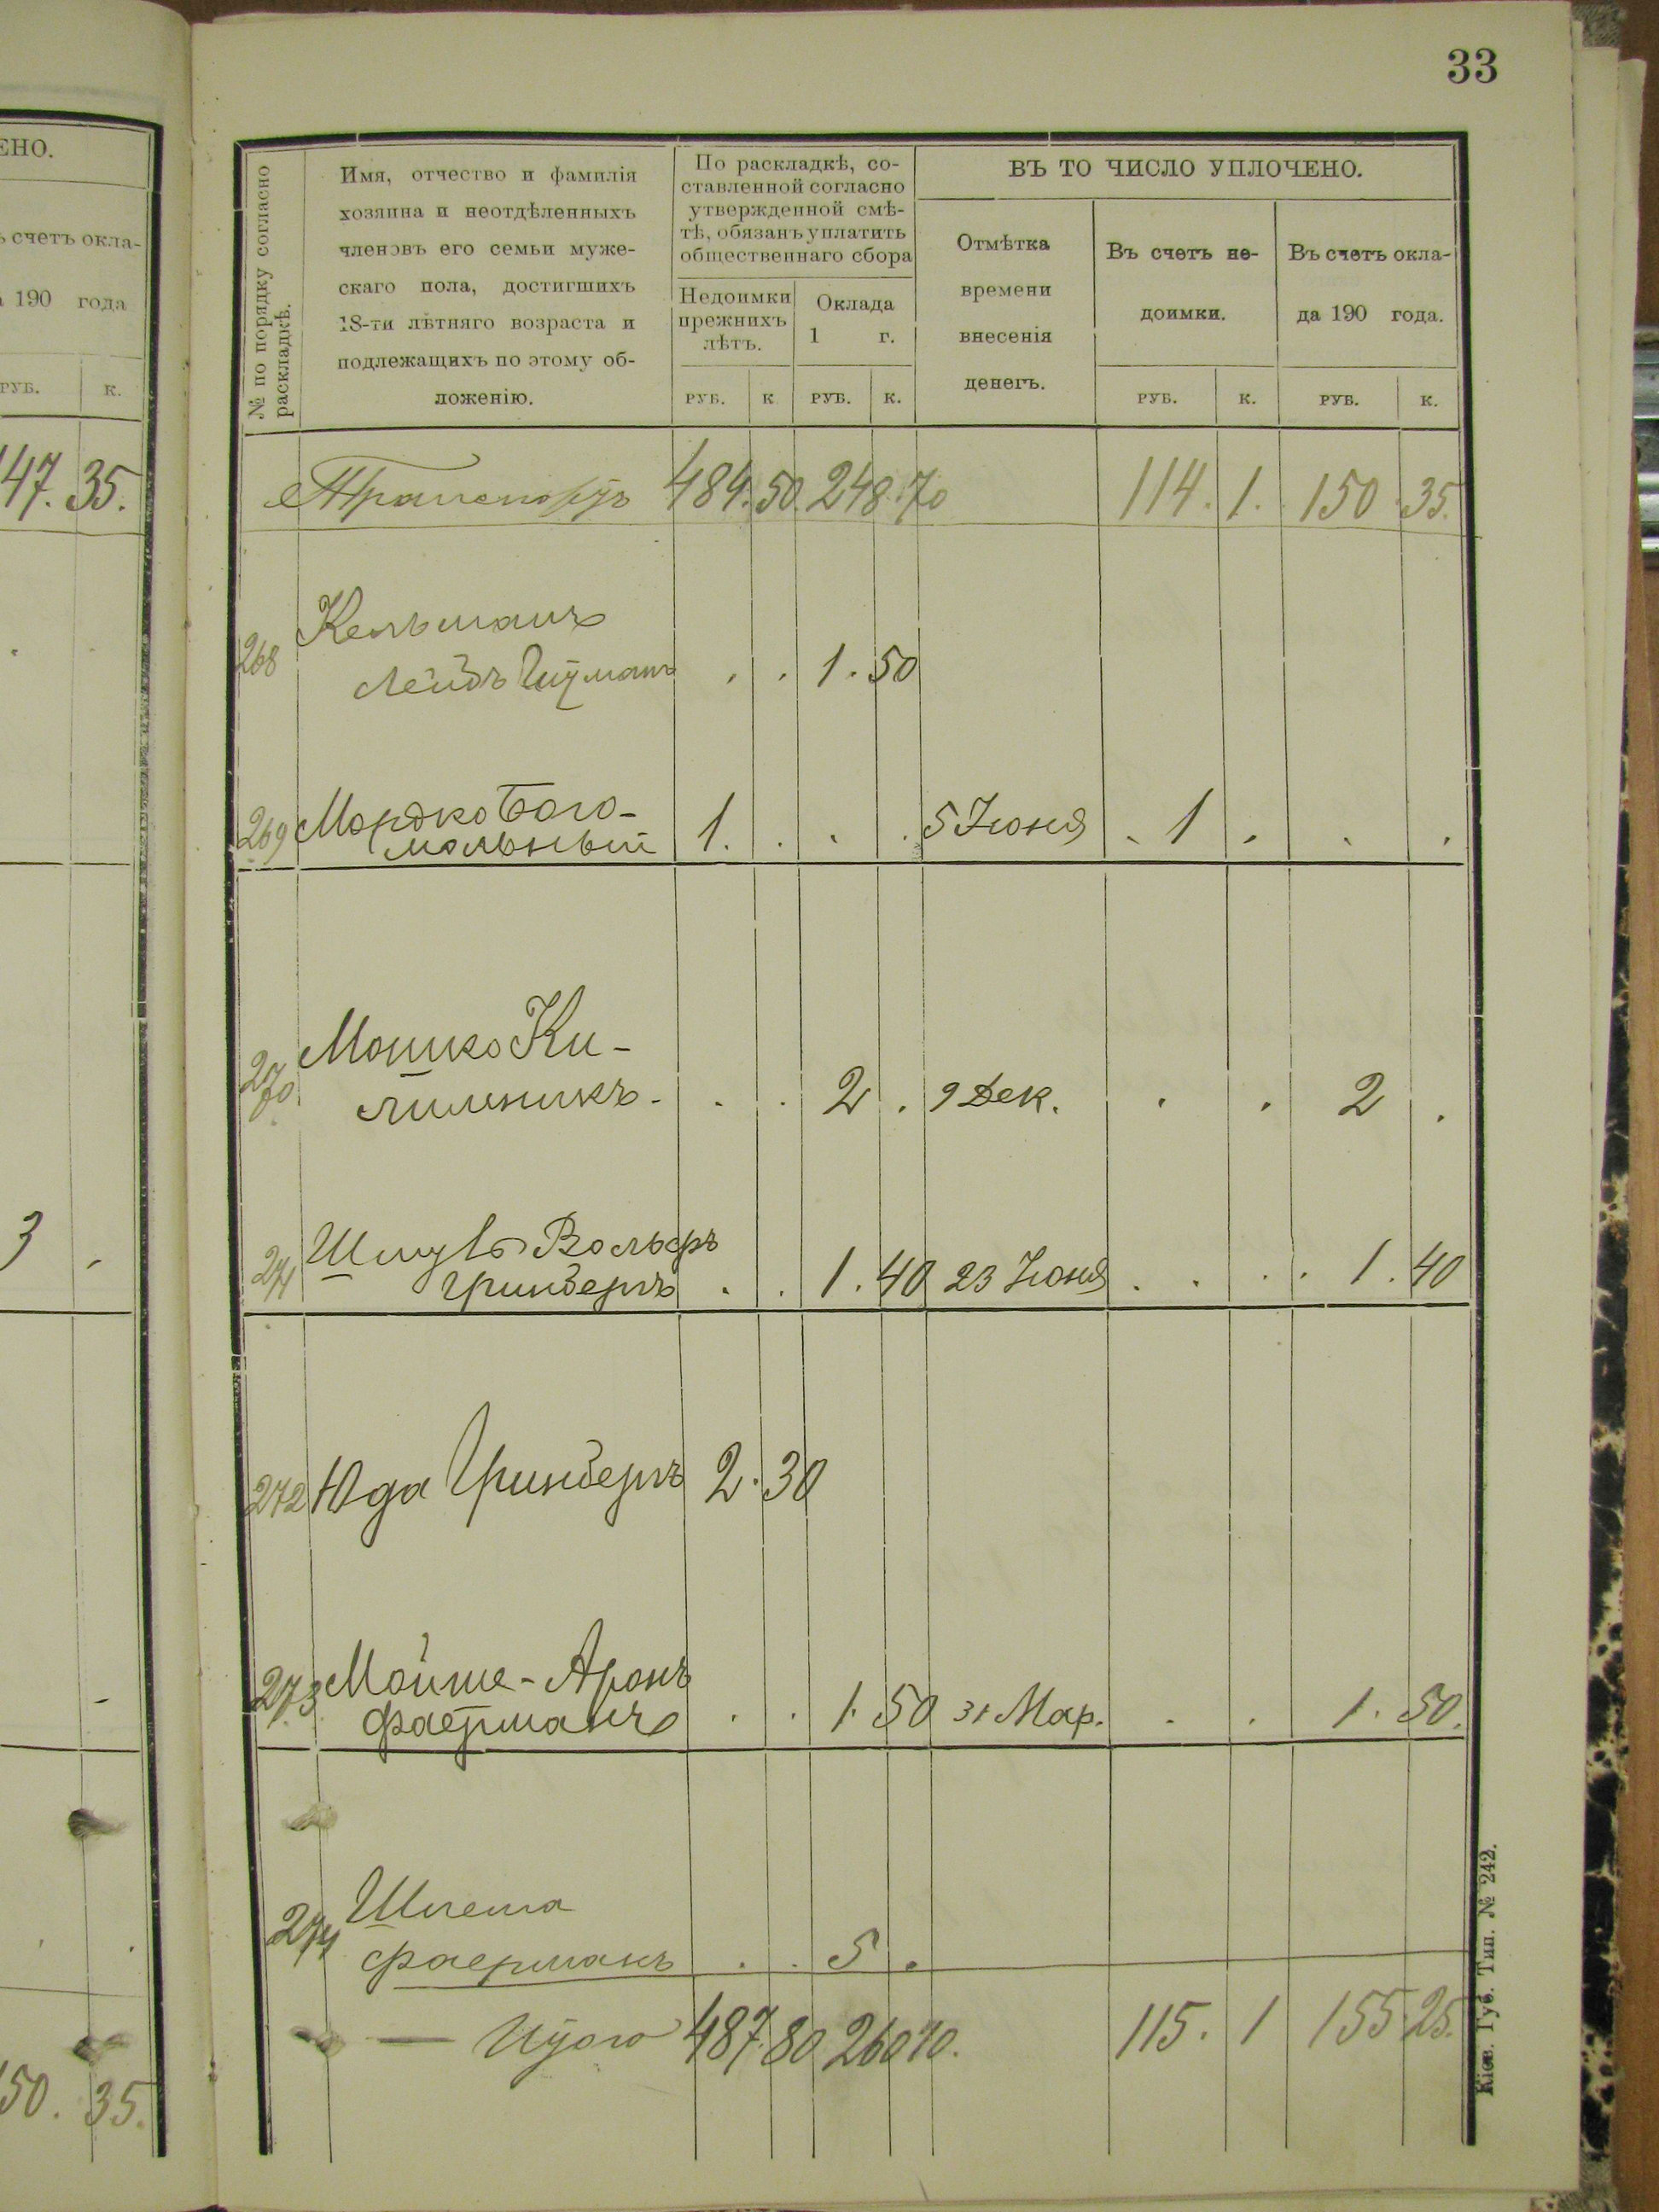 ЕНО.
ъ счетъ окла-
а 190 года
РУБ. К.
147. 35.
3
50. 35.
33
№ по порядку согласно
раскладкѣ.
Имя, отчество и фамилія
хозяина и неотдѣленныхъ
членовъ его семьи муже-
скаго пола, достигшихъ
18-ти лѣтняго возраста и
подлежащихъ по этому об-
ложенію.
По раскладкѣ, со-
ставленной согласно
утвержденной смѣ-
тѣ, обязанъ уплатить
общественнаго сбора
Недоимки
прежнихъ
лѣтъ.
Оклада
1 г.
РУБ. К РУБ. К.
ВЪ ТО ЧИСЛО УПЛОЧЕНО.
Отмѣтка
времени
внесенія
денегъ.
Въ счетъ не-
доимки.
РУБ. К.
Въ счетъ окла-
да 190 года.
РУБ. К.
Транспортъ 484. 50. 248. 70 114. 1. 150. 35.
Кельманъ
268 Лейбъ Гутманъ . . 1. 50
269 Мордко Бого-
мольный 1. . . . 5 Іюня . 1 . . .
270 Мошко Ки-
лимникъ. . . 2 . 9 Дек. . . 2 .
271 Шмуль Вольфъ
Гринбергъ . . 1. 40 23 Іюня . . . . 1. 40
272 Юда Гринбергъ 2. 30
273. Мойше-Аронъ
Фаерманъ . . 1. 50 31 Мар. . . 1. 50.
274 Шлема
Фаерманъ . . 5 .
— Итого 487. 80 260 10. 115. 1 155 25.
Кіев. Губ. Тип. № 242.